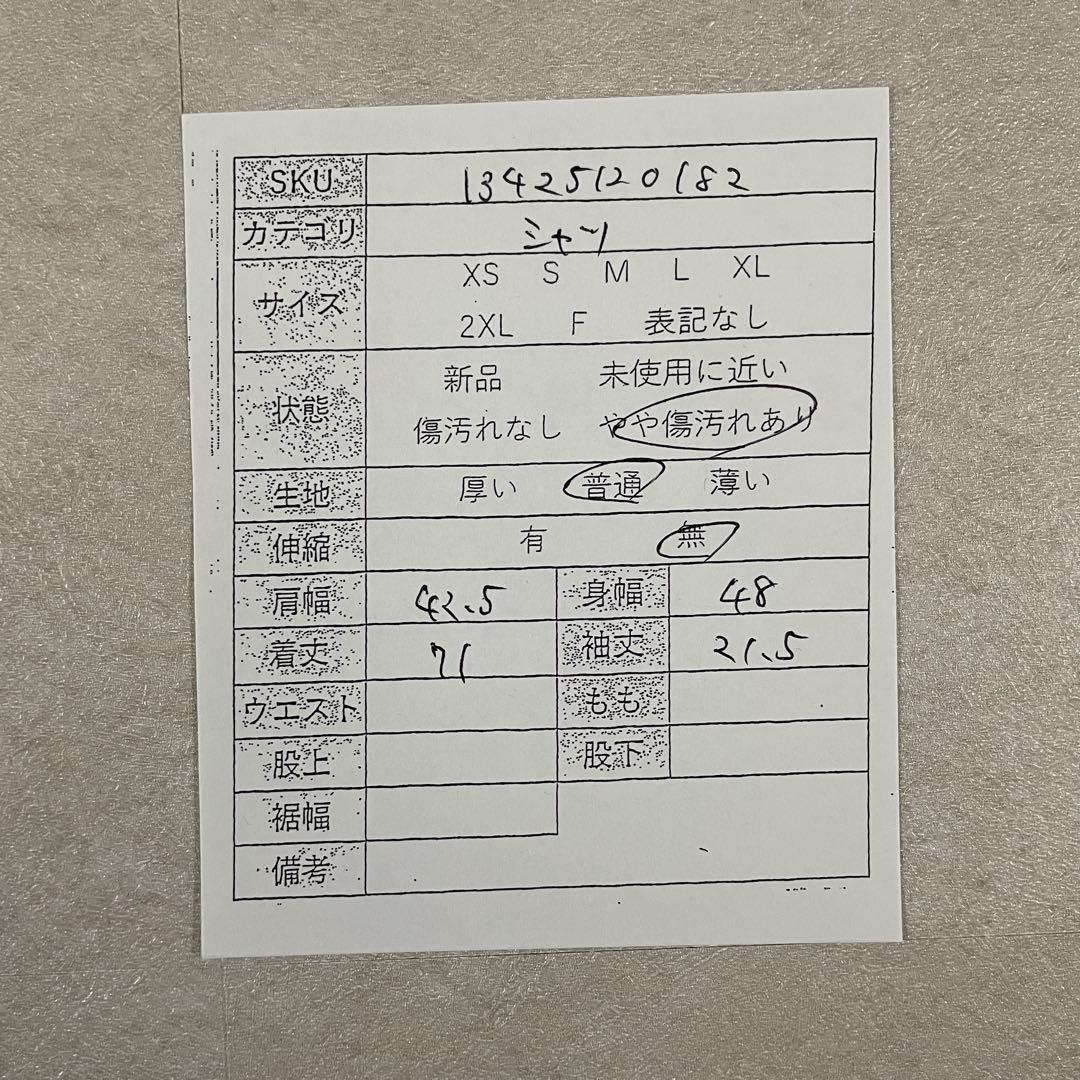 SKU 13425120182
カテゴリ シャツ
サイズ XS S M L XL
2XL F 表記なし
状態 新品 未使用に近い
傷汚れなし やや傷汚れあり
生地 厚い 普通 薄い
伸縮 有 無
肩幅 42.5 身幅 48
着丈 71 袖丈 21.5
ウエスト もも
股上 股下
裾幅
備考